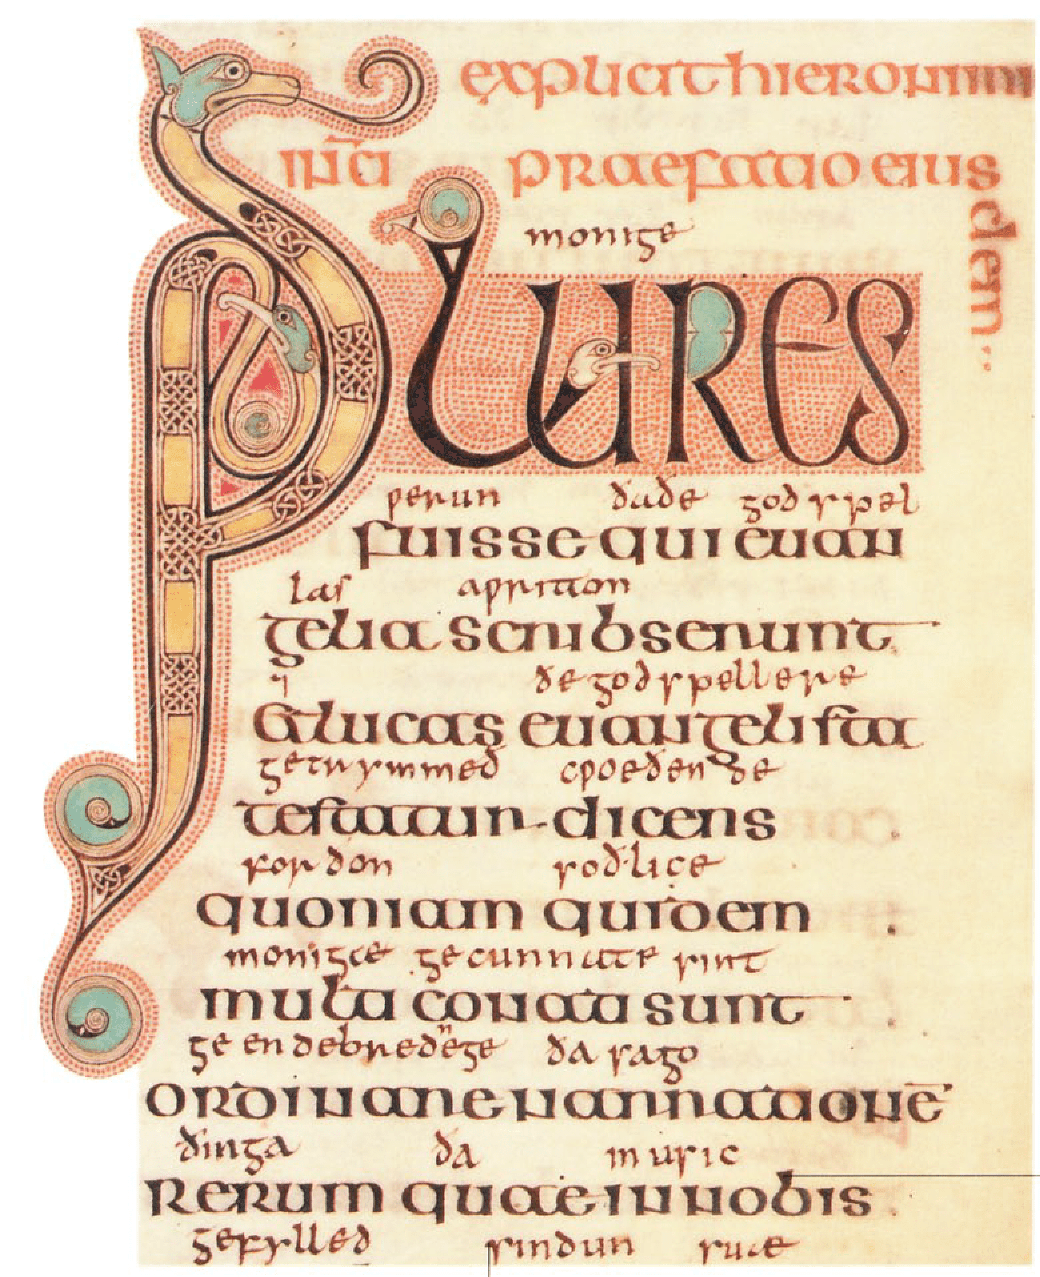 explicit hieronimi
praefatio eius
dem
monige
PLURES
ƿerun ðaðe godspel
fuisse qui euan
las aƿritton
gelia scribserunt
⁊ ðe godspellere
et lucas euangelista
getrymmed cƿoeðende
testatur dicens
forðon soðlice
quoniam quidem
monigæ gecunnate sint
multi conati sunt
ða sago
ordinare narrationē
ðinga ða in usic
rerum quae in nobis
gefylled sindun suæ